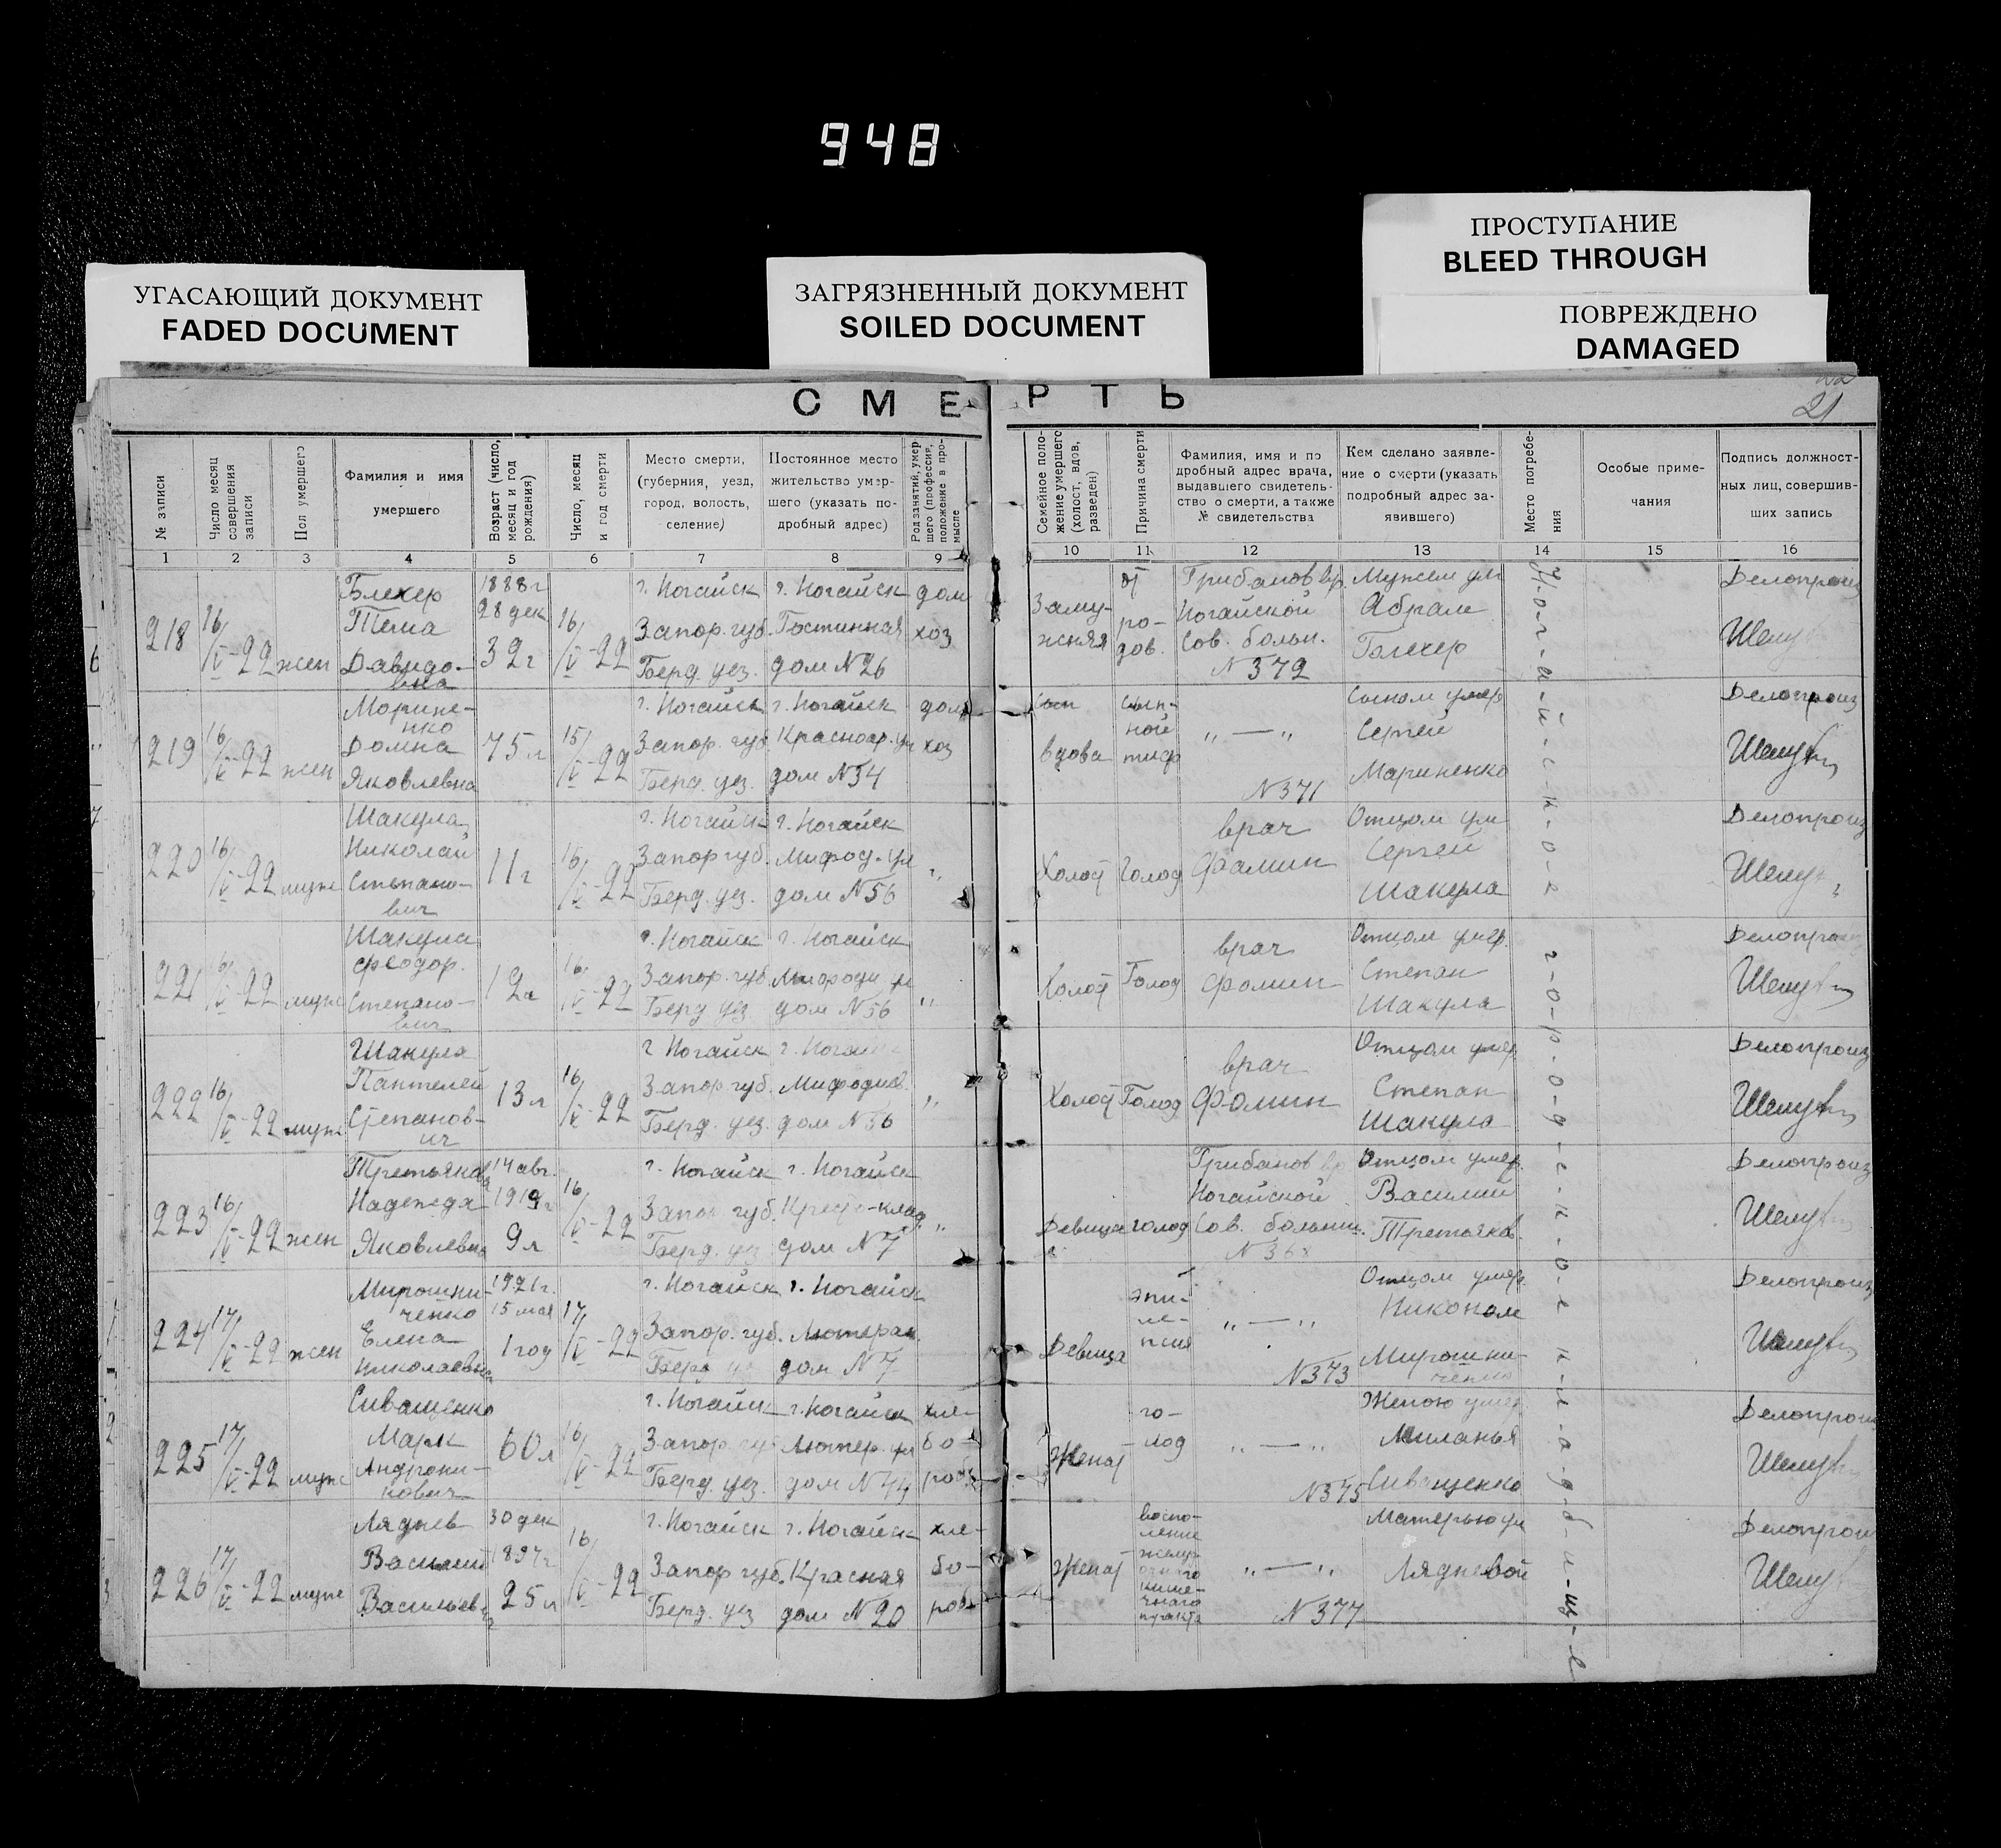 948
УГАСАЮЩИЙ ДОКУМЕНТ
FADED DOCUMENT
ЗАГРЯЗНЕННЫЙ ДОКУМЕНТ
SOILED DOCUMENT
ПРОСТУПАНИЕ
BLEED THROUGH
ПОВРЕЖДЕНО
DAMAGED
СМЕРТЬ
21
№ записи
Число месяц совершения записи
Пол умершего
Фамилия и имя умершего
Возраст (число, месяц и год рождения)
Число, месяц и год смерти
Место смерти, (губерния, уезд, город, волость, селение)
Постоянное место жительство умершего (указать подробный адрес)
Род занятий, умершего (профессия, положение в промысле
Семейное положение умершего (холост, вдов, разведен)
Причина смерти
Фамилия, имя и подробный адрес врача, выдавшего свидетельство о смерти, а также № свидетельства
Кем сделано заявление о смерти (указать подробный адрес заявившего)
Место погребения
Особые примечания
Подпись должностных лиц, совершивших запись
1 2 3 4 5 6 7 8 9 10 11 12 13 14 15 16
218 16/V-22 жен Блехер Тема Давидовна 1888г 28 дек 32г 16/V-22 г. Ногайск Запор. губ. Берд. уез. г. Ногайск Гостинная дом №26 дом хоз Замужняя от родов. Грибанов вр. Ногайской Сов. больн. №372 Мужем ум Абрам Блехер Делопроиз
219 16/V-22 жен Мориненко Домна Яковлевна 75 л 15/V-22 г. Ногайск Запор. губ. Берд. уез. г. Ногайск дом №34 дом хоз вдова сыпной тиф „ — „ №371 Сыном умер Сергей Мариненко Делопроиз
220 16/V-22 муж Шакула Николай Степанович 11 г 15/V-22 г. Ногайск Запор губ. Берд. уез. г. Ногайск Мифод. ул дом №56 „ Холост Голод врач Фамин Отцом ум Сергей Шакула Делопроиз
221 16/V-22 муж Шакула Феодор. Степанович 16/V-22 г. Ногайск Запор. губ. Берд уез. г. Ногайск дом №56 „ Холост Голод врач Фомин Отцом умер. Степан Шакула Делопроиз
222 16/V-22 муж Шакула Пантелей Степанович 13 л 16/V-22 г Ногайск Запор губ. Берд. уез. г. Ногайск Мифодиев. дом №56 „ Холост Голод врач Фомин Отцом умер Степан Шакула Делопроиз
223 16/V-22 жен Третьякова Надежда Яковлевна 14 авг. 9 л 16/V-22 г. Ногайск Запор губ. Берд. уез г. Ногайск дом №7 „ Девица голод Грибанов вр Ногайской Сов. больниц. Отцом умер. Василий Третьяков. Делопроиз
224 17/V-22 жен Мирошниченко Елена Николаевна 1921г. 15 мая 1 год 17/V-22 г. Ногайск Запор. губ. Берд уез г. Ногайск Лютеран. дом №7 Девица эпилепсия „ — „ №373 Отцом умер. Никоном Мирошниченко Делопроиз
225 17/V-22 муж Сиващенко Марк Андроникович 60 л 16/V-22 г. Ногайск Запор. губ Берд. уез. г. Ногайск Лютер. ул дом №44 хлебороб Женат голод „ — „ №375 Женою умер Миланья Сиващенко Делопроиз
226 17/V-22 муж Ляднев Василий Васильевич 30 дек 1897г. 25 л 16/V-22 г. Ногайск Запор губ. Берд. уез г. Ногайск Красная дом №20 хлебороб Женат „ — „ №377 Матерью ум Лядневой Делопроиз
Ногайское городское кладбище